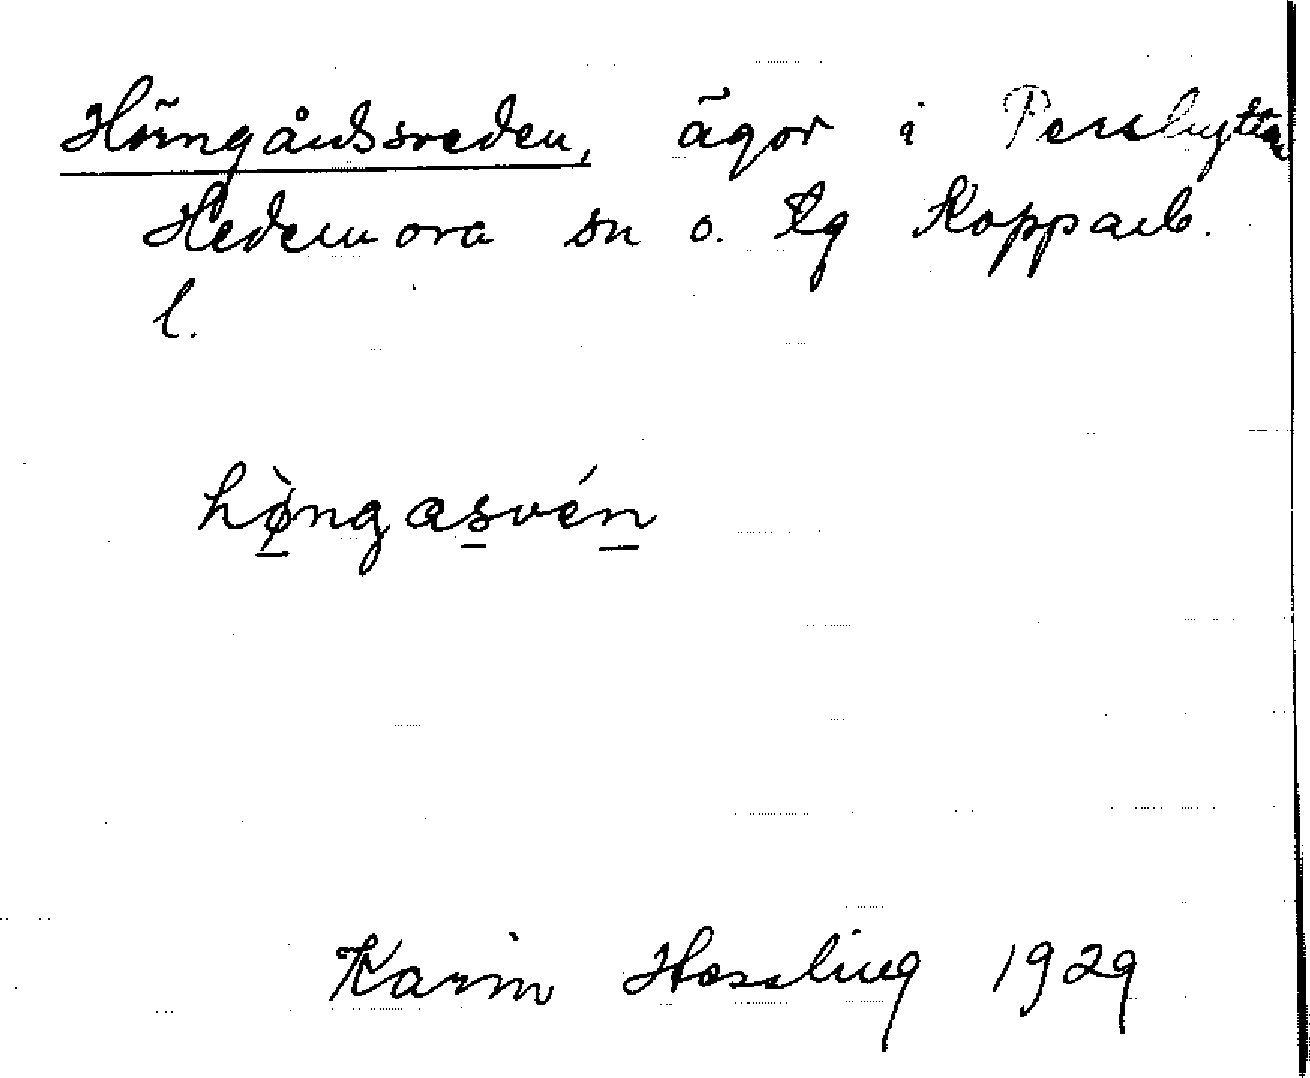 Hörngårdssveden, ägor i Pershyttan
Hedemora sn o. tg Kopparb.
l.
hø̀ngasvén
Karin Hessling 1929